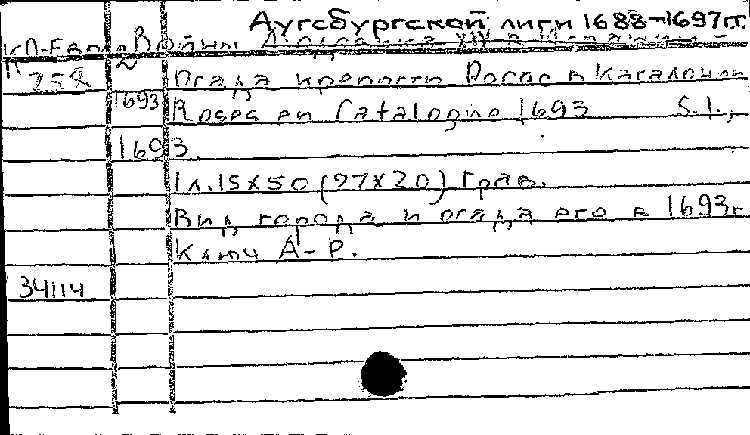 Аугсбургской лиги 1688-1697гг.
КП-Евро Войны
1693 Осада крепости Росас в Каталонии
Roses en Catalogne 1693 S.l.,
1693.
1 л. 15x50 (97x20) Грав.
Вид города и осада его в 1693г
Ключ А-Р.
34114